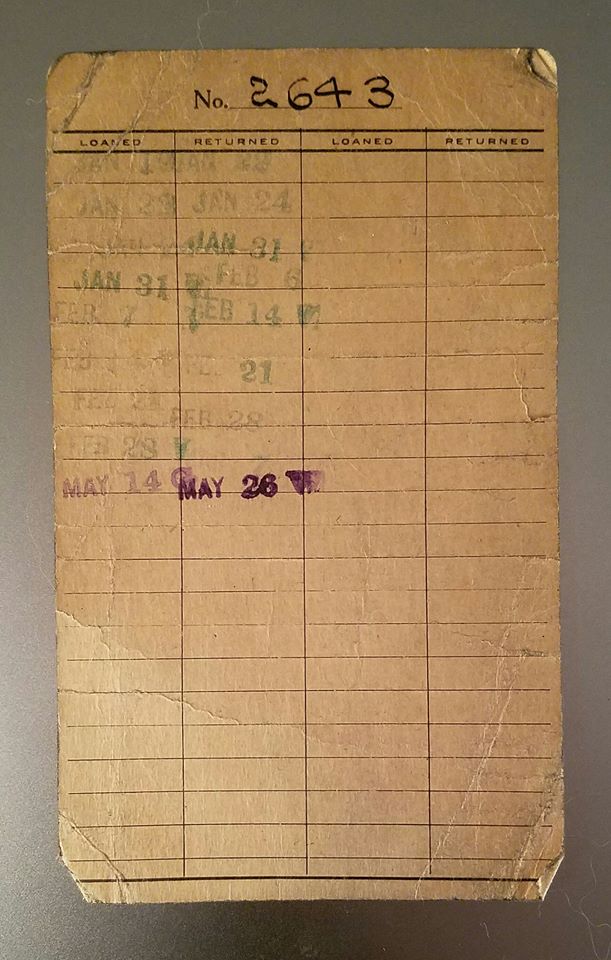 No. 2643
LOANED RETURNED LOANED RETURNED
JAN
JAN 23 JAN 24
JAN 31
JAN 31 FEB 6
FEB 7 FEB 14
21
FEB 28
FEB 28
MAY 14 MAY 26